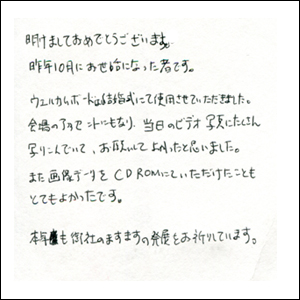 明けましておめでとうございます。
昨年10月にお世話になった者です。
ウェルカムボードは結婚式にて使用させていただきました。
会場のアクセントにもなり、当日のビデオ、写真にたくさん
写りこんでいて、お願いしてよかったと思いました。
また画像データをCDROMにていただけたことも
とてもよかったです。
本年も御社のますますの発展をお祈りしています。